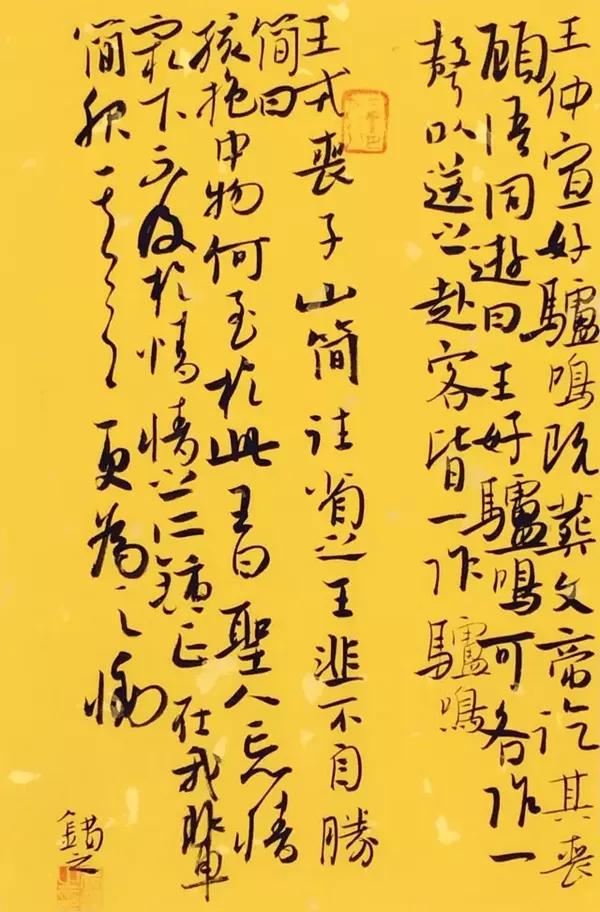 王仲宣好驢鳴既葬文帝臨其喪
顧語同遊曰王好驢鳴可各作一
聲以送之赴客皆一作驢鳴
王戎喪子山簡往省之王悲不自勝
簡曰
孩抱中物何至於此王曰聖人忘情
最下不及於情情之所鍾正在我輩
簡服其言更為之慟
錯之